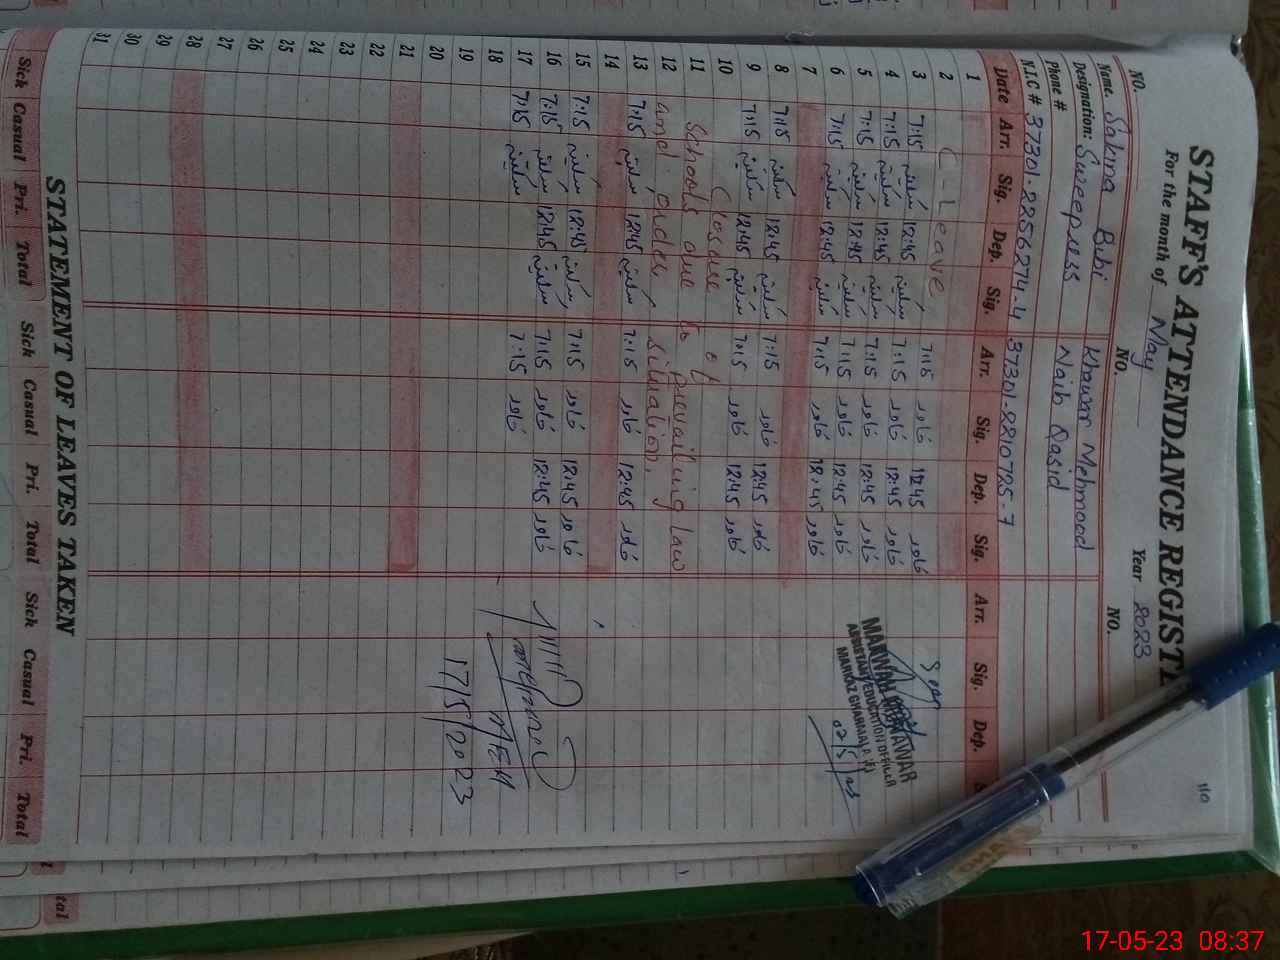 110
STAFF'S ATTENDANCE REGISTE
For the month of May Year 2023
NO. NO. NO.
Name. Sakina Bibi Khawar Mehmood
Designation: Sweepress Naib Qasid
Phone #
N.I.C # 37301-2256274-4 37301-2210725-7
Date Arr. Sig. Dep. Sig. Arr. Sig. Dep. Sig. Arr. Sig. Dep.
1
2 C-Leave
3 7:15 سکینہ 12:45 سکینہ 7:15 خاور 12:45 خاور
4 7:15 سکینہ 12:45 سکینہ 7:15 خاور 12:45 خاور
5 7:15 سکینہ 12:45 سکینہ 7:15 خاور 12:45 خاور
6 7:15 سکینہ 12:45 سکینہ 7:15 خاور 12:45 خاور
7 7:15 خاور 12:45 خاور
8 7:15 سکینہ 12:45 سکینہ 7:15 خاور 12:45 خاور
9 7:15 سکینہ 12:45 سکینہ 7:15 خاور 12:45 خاور
10 Closure of
11 Schools due to prevailing law
12 and order situation.
13 7:15 سکینہ 12:45 سکینہ 7:15 خاور 12:45 خاور
14
15 7:15 سکینہ 12:45 سکینہ 7:15 خاور 12:45 خاور
16 7:15 سکینہ 12:45 سکینہ 7:15 خاور 12:45 خاور
17 7:15 7:15 خاور
18
19
20
21
22
23
24
25
26
27
28
29
30
31
Seen
ASSISTANT EDUCATION OFFICER
MARKAZ GHARMALA (F)
02/5/23
AEO
17/5/2023
STATEMENT OF LEAVES TAKEN
Sick Casual Pri. Total Sick Casual Pri. Total Sick Casual Pri. Total
tal
17-05-23 08:37